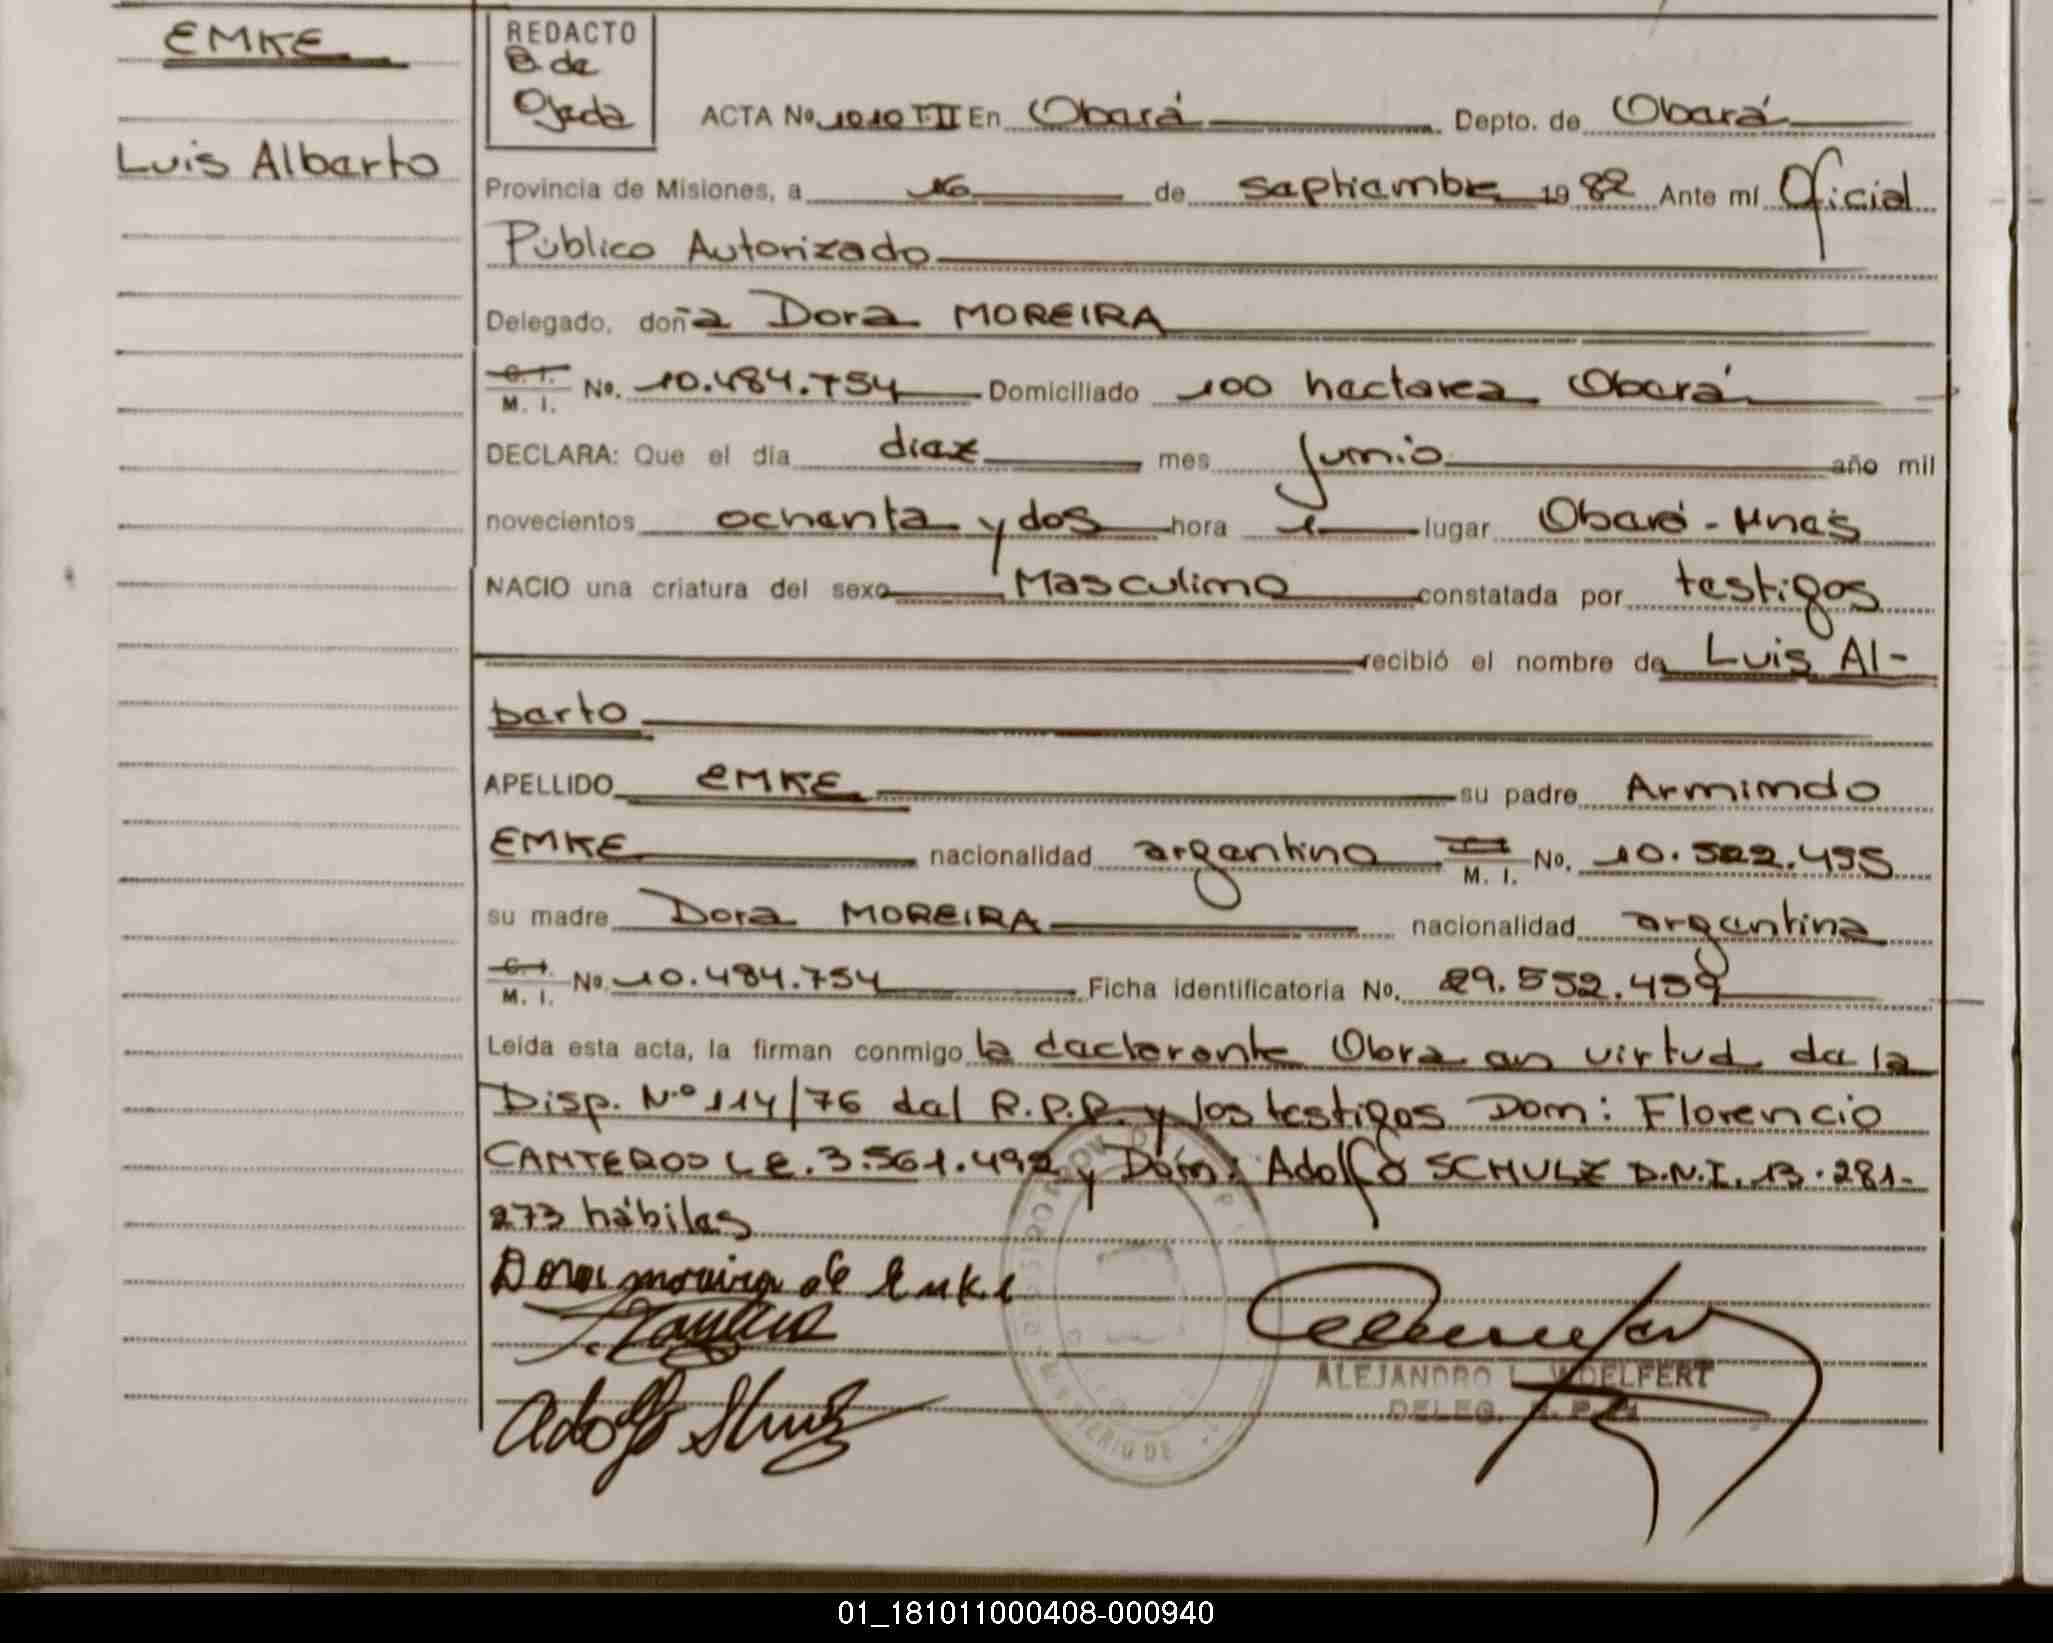 EMKE
Luis Alberto
REDACTO
B. de
Ojeda
ACTA No. 1010 T.II En Oberá Depto. de Oberá
Provincia de Misiones, a 16 de septiembre 1982 Ante mí Oficial
Público Autorizado
Delegado, doña Dora MOREIRA
C. I. M. I. No. 10.484.754 Domiciliado 100 hectarea Oberá
DECLARA: Que el día diez mes junio año mil
novecientos ochenta y dos hora 1 lugar Oberá - Mnes
NACIO una criatura del sexo Masculino constatada por testigos
recibió el nombre de Luis Al-
berto
APELLIDO EMKE su padre Armindo
EMKE nacionalidad argentino M. I. No. 10.522.455
su madre Dora MOREIRA nacionalidad argentina
C. I. M. I. No. 10.484.754 Ficha identificatoria No. 29.552.459
Leída esta acta, la firman conmigo la declarante Obra en virtud de la
Disp. N.º 114/76 del R.P.P. y los testigos Dom: Florencio
CANTEROS L.E. 3.561.492 y Dom: Adolfo SCHULZ D.N.I. 13.281-
273 hábiles
Dora moreira de Emke
Adolfo Shulz
ALEJANDRO L. WOELFERT
DELEG. R. P. P.
01_181011000408-000940